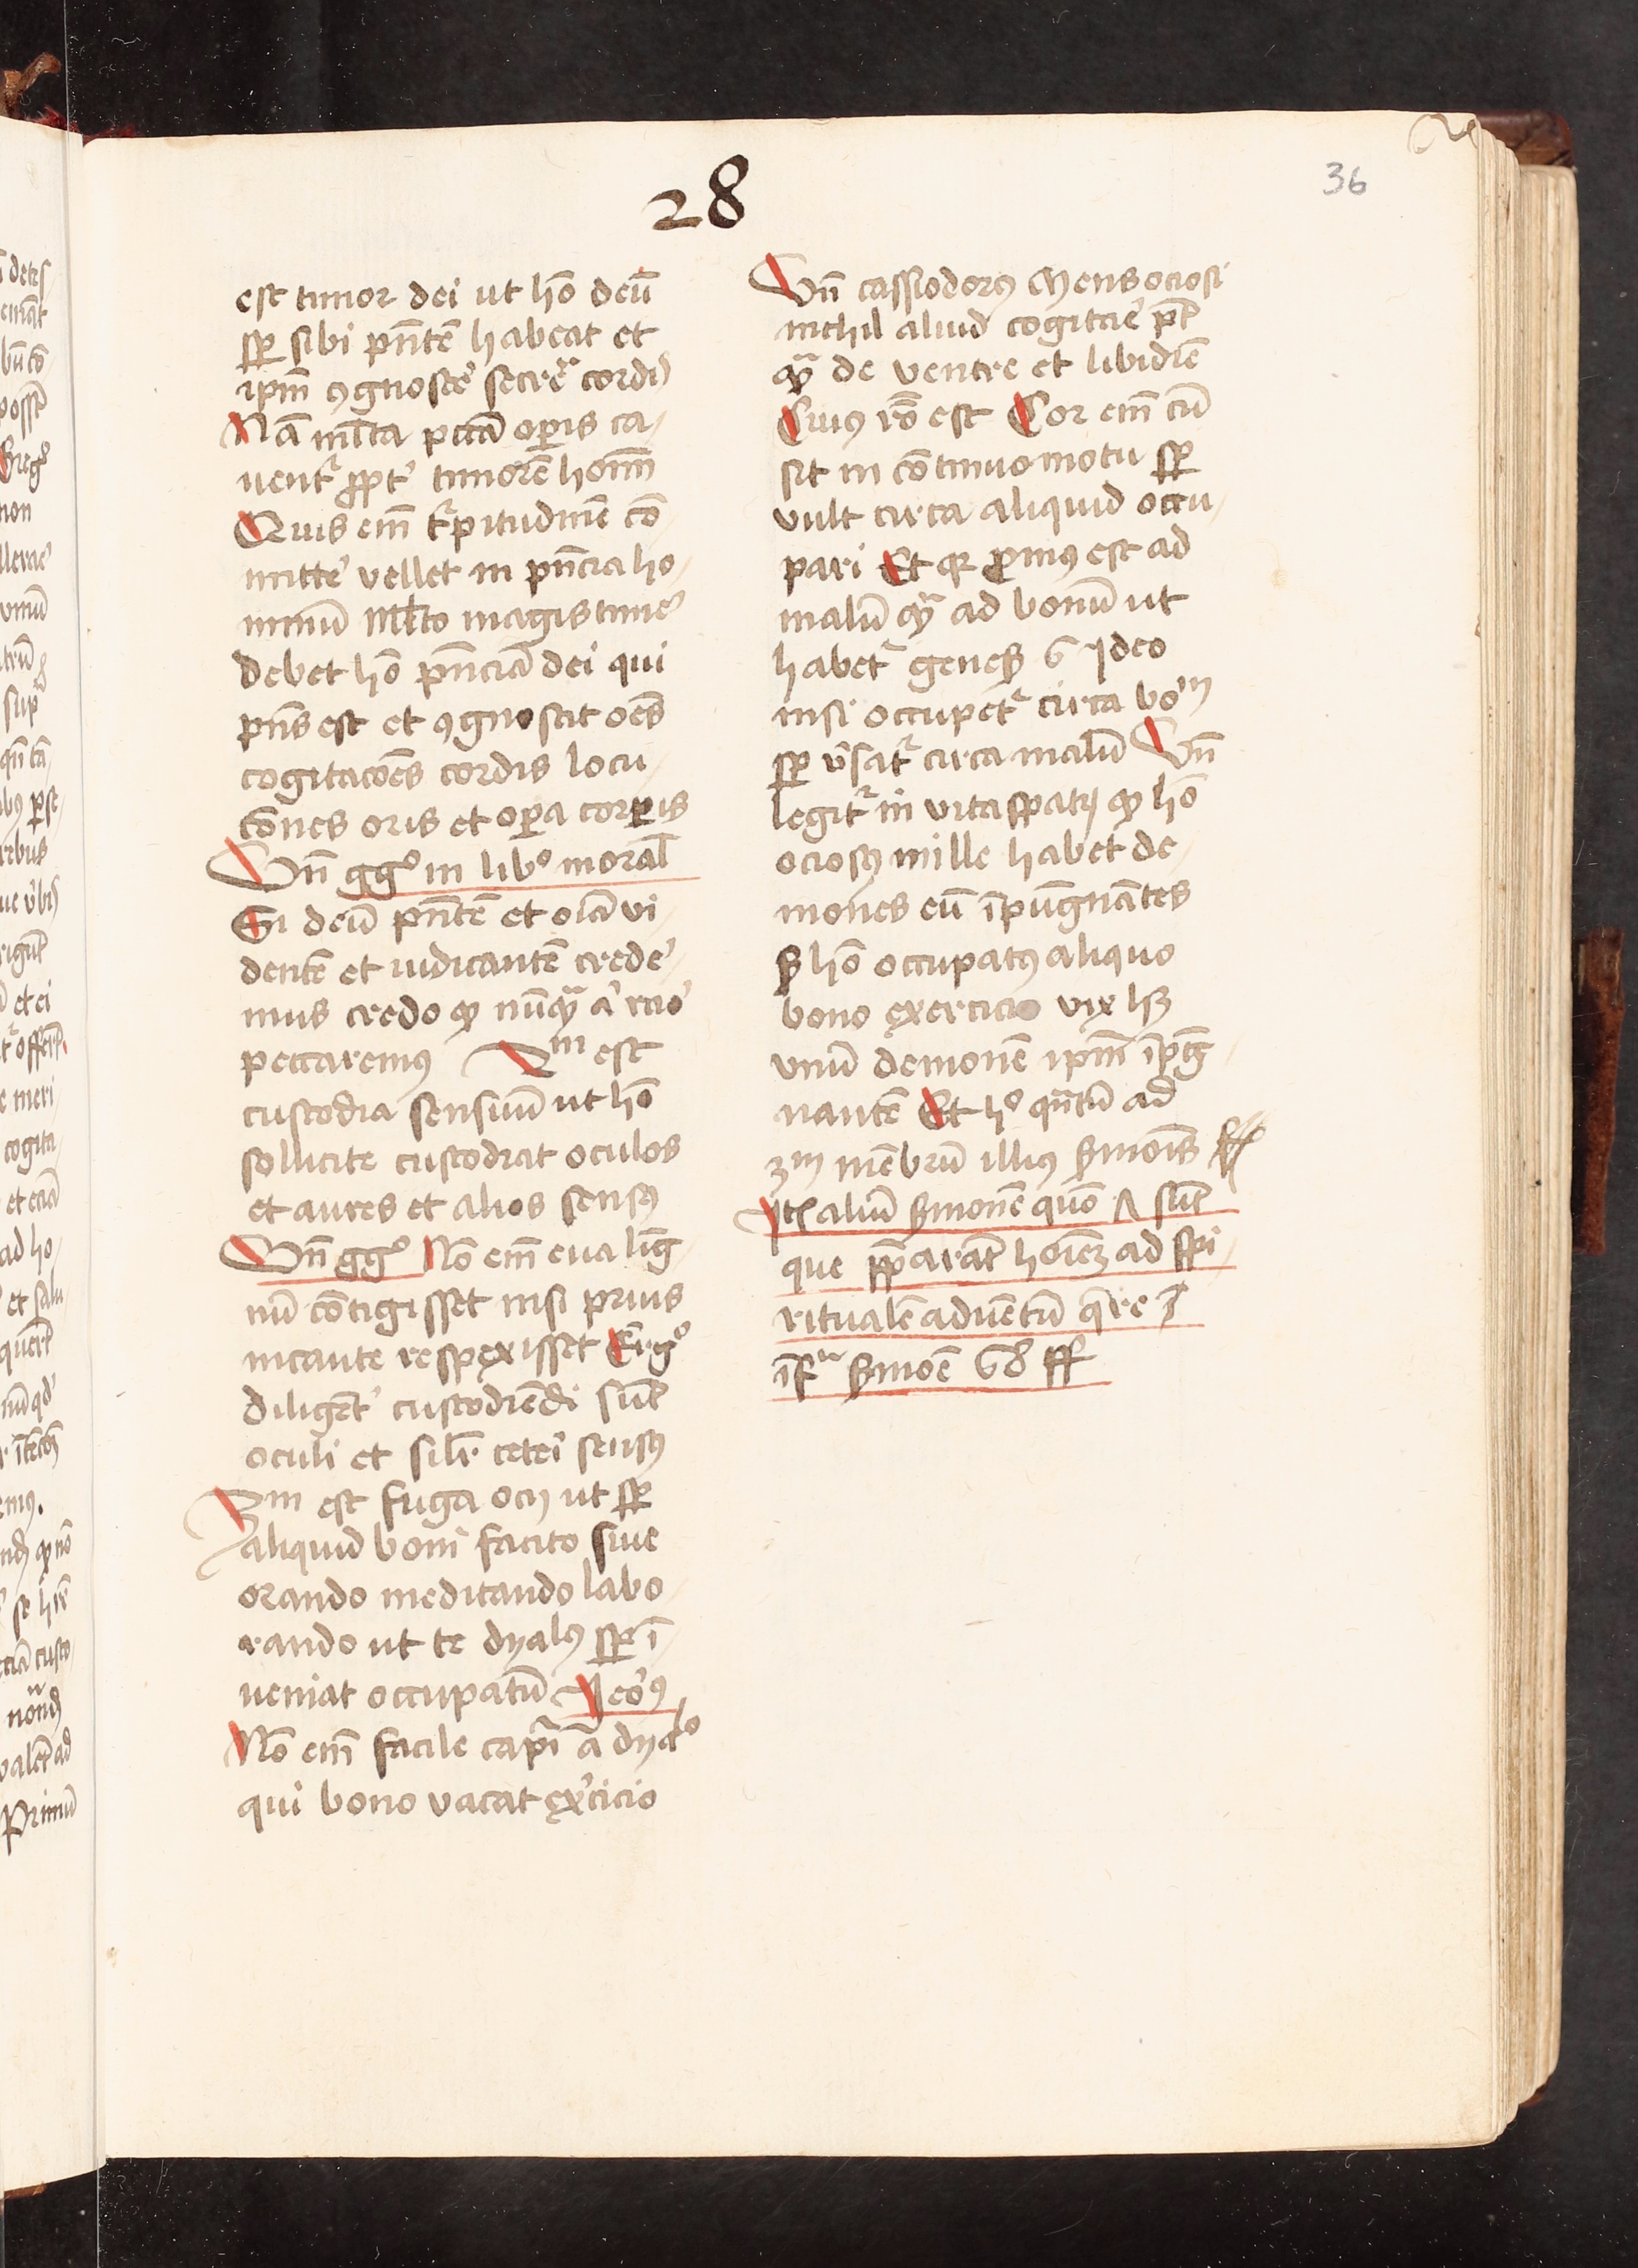 28
36
est timor dei ut hō deū
sꝑ sibi pn̄tē habeat et
ip̄m ꝯgnoscē secreᷓ cordis
Nā ml̄ta pctā oꝑis ca/
uent᷑ ꝓpt᷑ timorē hoīm
Quis em̄ t᷑pitudinē cō
mitte᷑ vellet in pn̄cia ho/
minū Ml̄to magis time᷑
debet hō pn̄ciā dei qui
pn̄s est et ꝯgnoscit oēs
cogitacōes cordis locu/
cōnes oris et oꝑa corꝑis
Vn̄ ggᵒ in libᵒ moral̄
Si deū pn̄tē et oīa vi
dentē et iudicantē crede᷑/
mus credo ꝙ nūqᷓ a᷑ rcio᷑
peccaremꝰ Qᵐ est
custodia sensuū ut hō
sollicite custodiat oculos
et aures et alios sensꝰ
Vn̄ ggᵒ Nō em̄ eua liḡ
nū cōtigisset nisi prius
incaute respexisset Er̄gᵒ
diligēt᷑ custodiēdi sūt
oculi et sil̄r cete᷑i sensꝰ
ᵐ est fuga ocij ut sꝑ
aliquid boni facito siue
orando meditando labo
rando ut te dyalꝰ sꝑ ī
ueniat occupatū Jeo᷑ꝰ
Nō em̄ facile capi᷑ a dyᵃᵒ
qui bono vacat ex᷑cicio
Vn̄ cassiodorꝰ Mens ociosi
nichil aliud cogitar̄e pt̄
qᷓ de ventre et libidīe
Cuiꝰ rō est Cor em̄ cū
sit in cōtinuo motu sꝑ
vult circa aliquid occu/
pari Et qꝛ ꝓniꝰ est ad
malū qᷓ ad bonū ut
habet᷑ geneß 6 Ideo
nisi occupet᷑ circa bo᷑ᵐ
sꝑ v᷑sat᷑ circa malū Vn̄
legit᷑ in vitaspatꝝ ꝙ hō
ociosꝰ mille habet de/
mones eū īpūgnātes
ß hō occupatꝰ aliquo
bono exercicio vix hꝫ
vnū demonē ip̄m īpūg/
nantē Et hᵒ qn̄tū ad
3ᵐ mēbrū illiꝰ ßmoīs
Itē aliū ßmonē quō sūt
que p̄parāt hoīeꝫ ad spi/
ritualē aduētū q̄re
īfᵃ ßmōe 68 ff